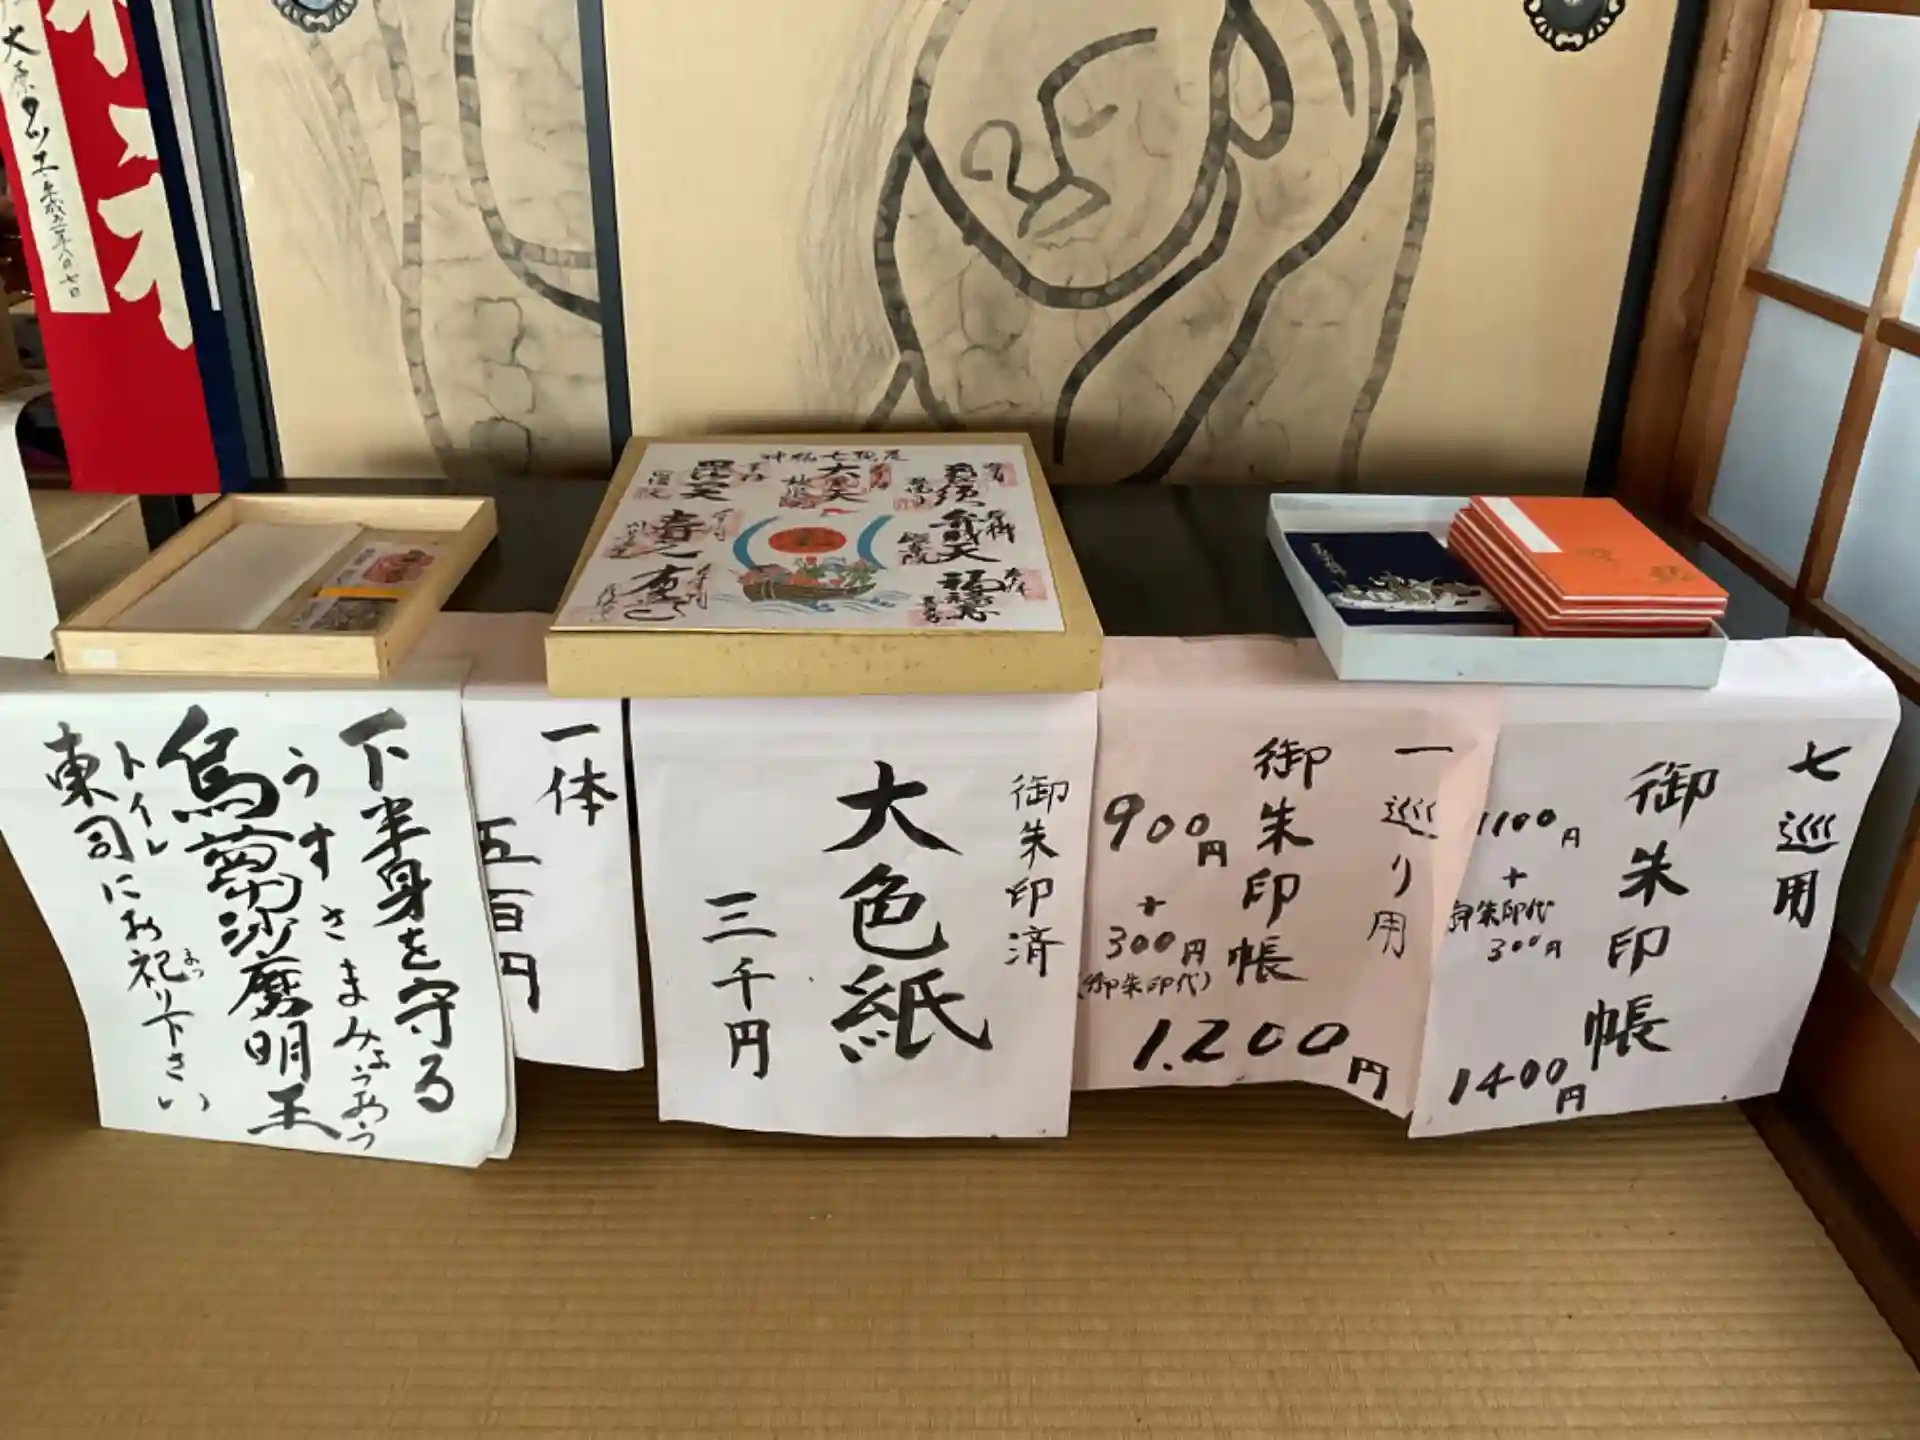 大原タツエ
七巡用
御朱印帳
1100円
+
御朱印代
300円
1400円
一巡り用
御朱印帳
900円
+
300円
(御朱印代)
1.200円
御朱印済
大色紙
三千円
一体
五百円
下半身を守る
うすさまみょうおう
烏蒭沙磨明王
トイレ
東司にお祀り下さい
まつ
毘沙門天
大黒天
弁財天
寿老人
布袋